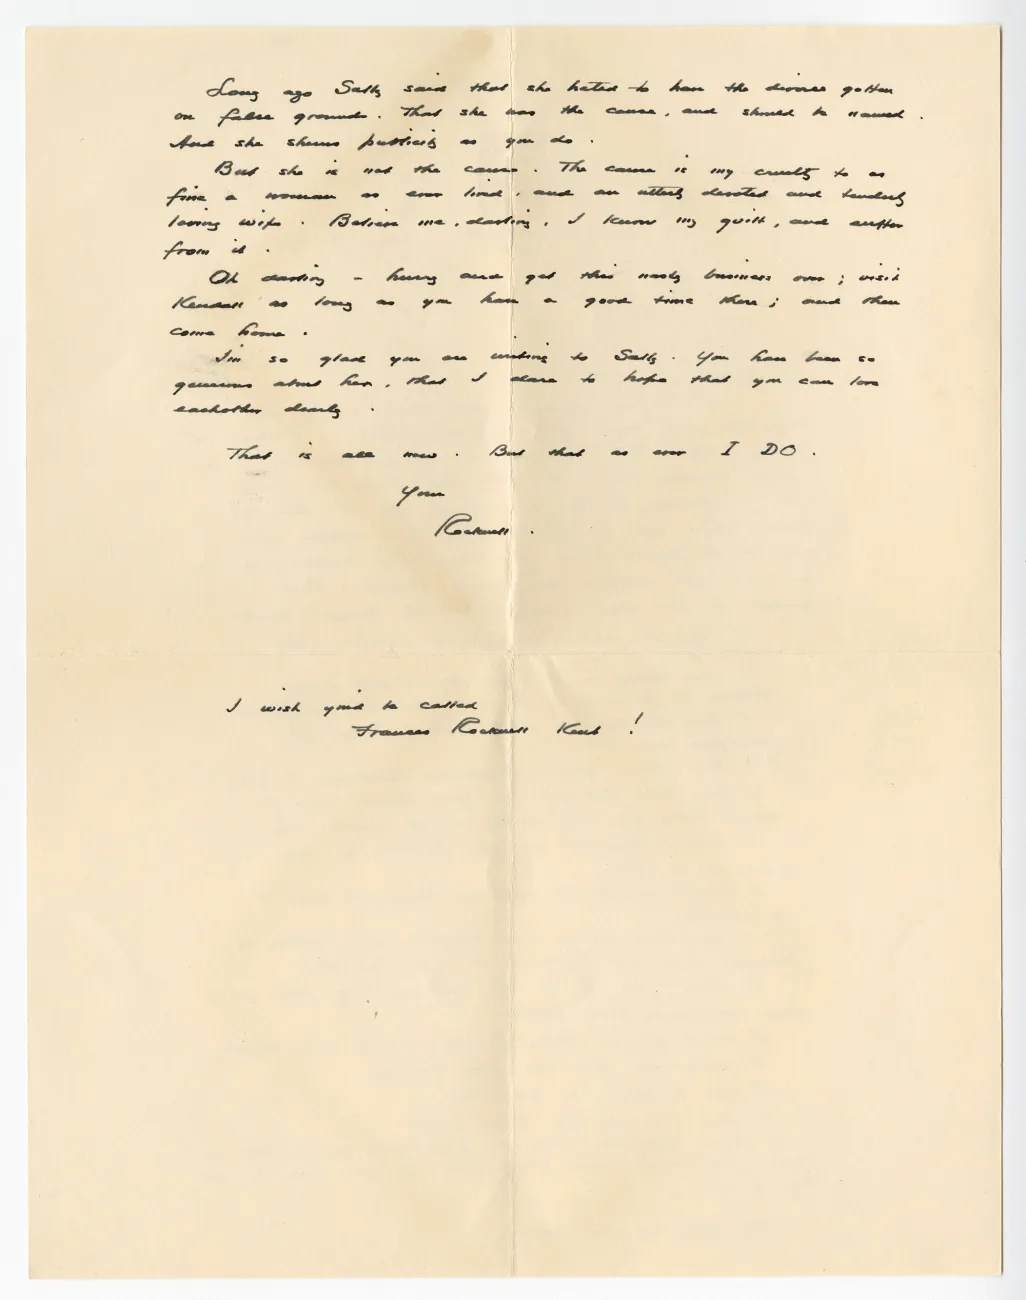 Long ago Sally said that she hated to have the divorce gotten
on false grounds. That she was the cause, and should be named.
And she shuns publicity as you do.
But she is not the cause. The cause is my cruelty to as
fine a woman as ever lived, and an utterly devoted and tenderly
loving wife. Believe me, darling, I know my guilt, and suffer
from it.
Oh darling – hurry and get this nasty business over; visit
Kendall as long as you have a good time there; and then
come home.
I'm so glad you are writing to Sally. You have been so
generous about her, that I dare to hope that you can love
eachother dearly.
That is all now. But that as ever I DO.
Your
Rockwell.
I wish you'd be called
Frances Rockwell Kent!